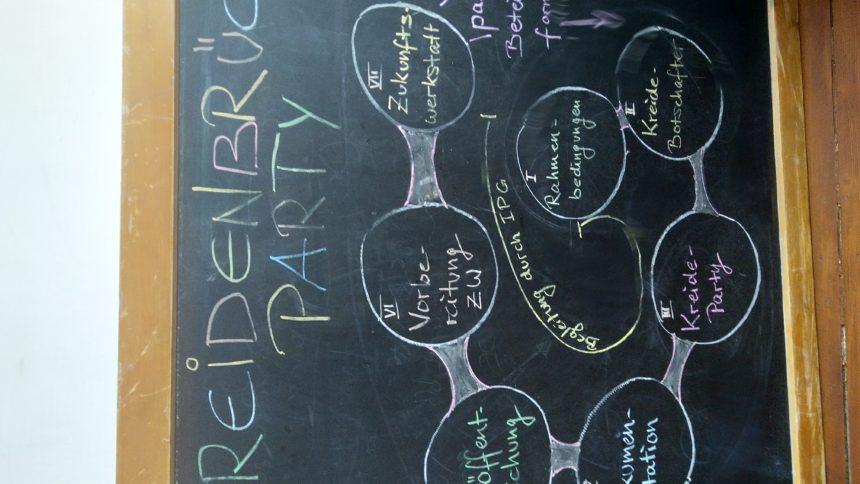 REIDENBRÜC
PARTY
VII
Zukunfts-
werkstatt
I
Rahmen-
bedingungen
II
Kreide-
Botschafter
III
Kreide-
Party
kumen-
tation
öffent-
chung
VI
Vorbe-
reitung
ZW
Begleitung durch IPG